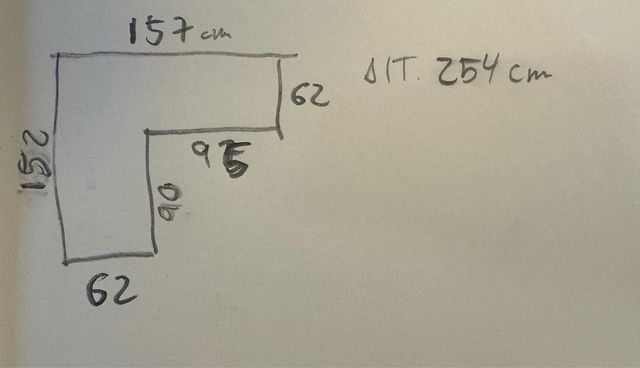 157 cm
62
254 cm
152
95
90
62